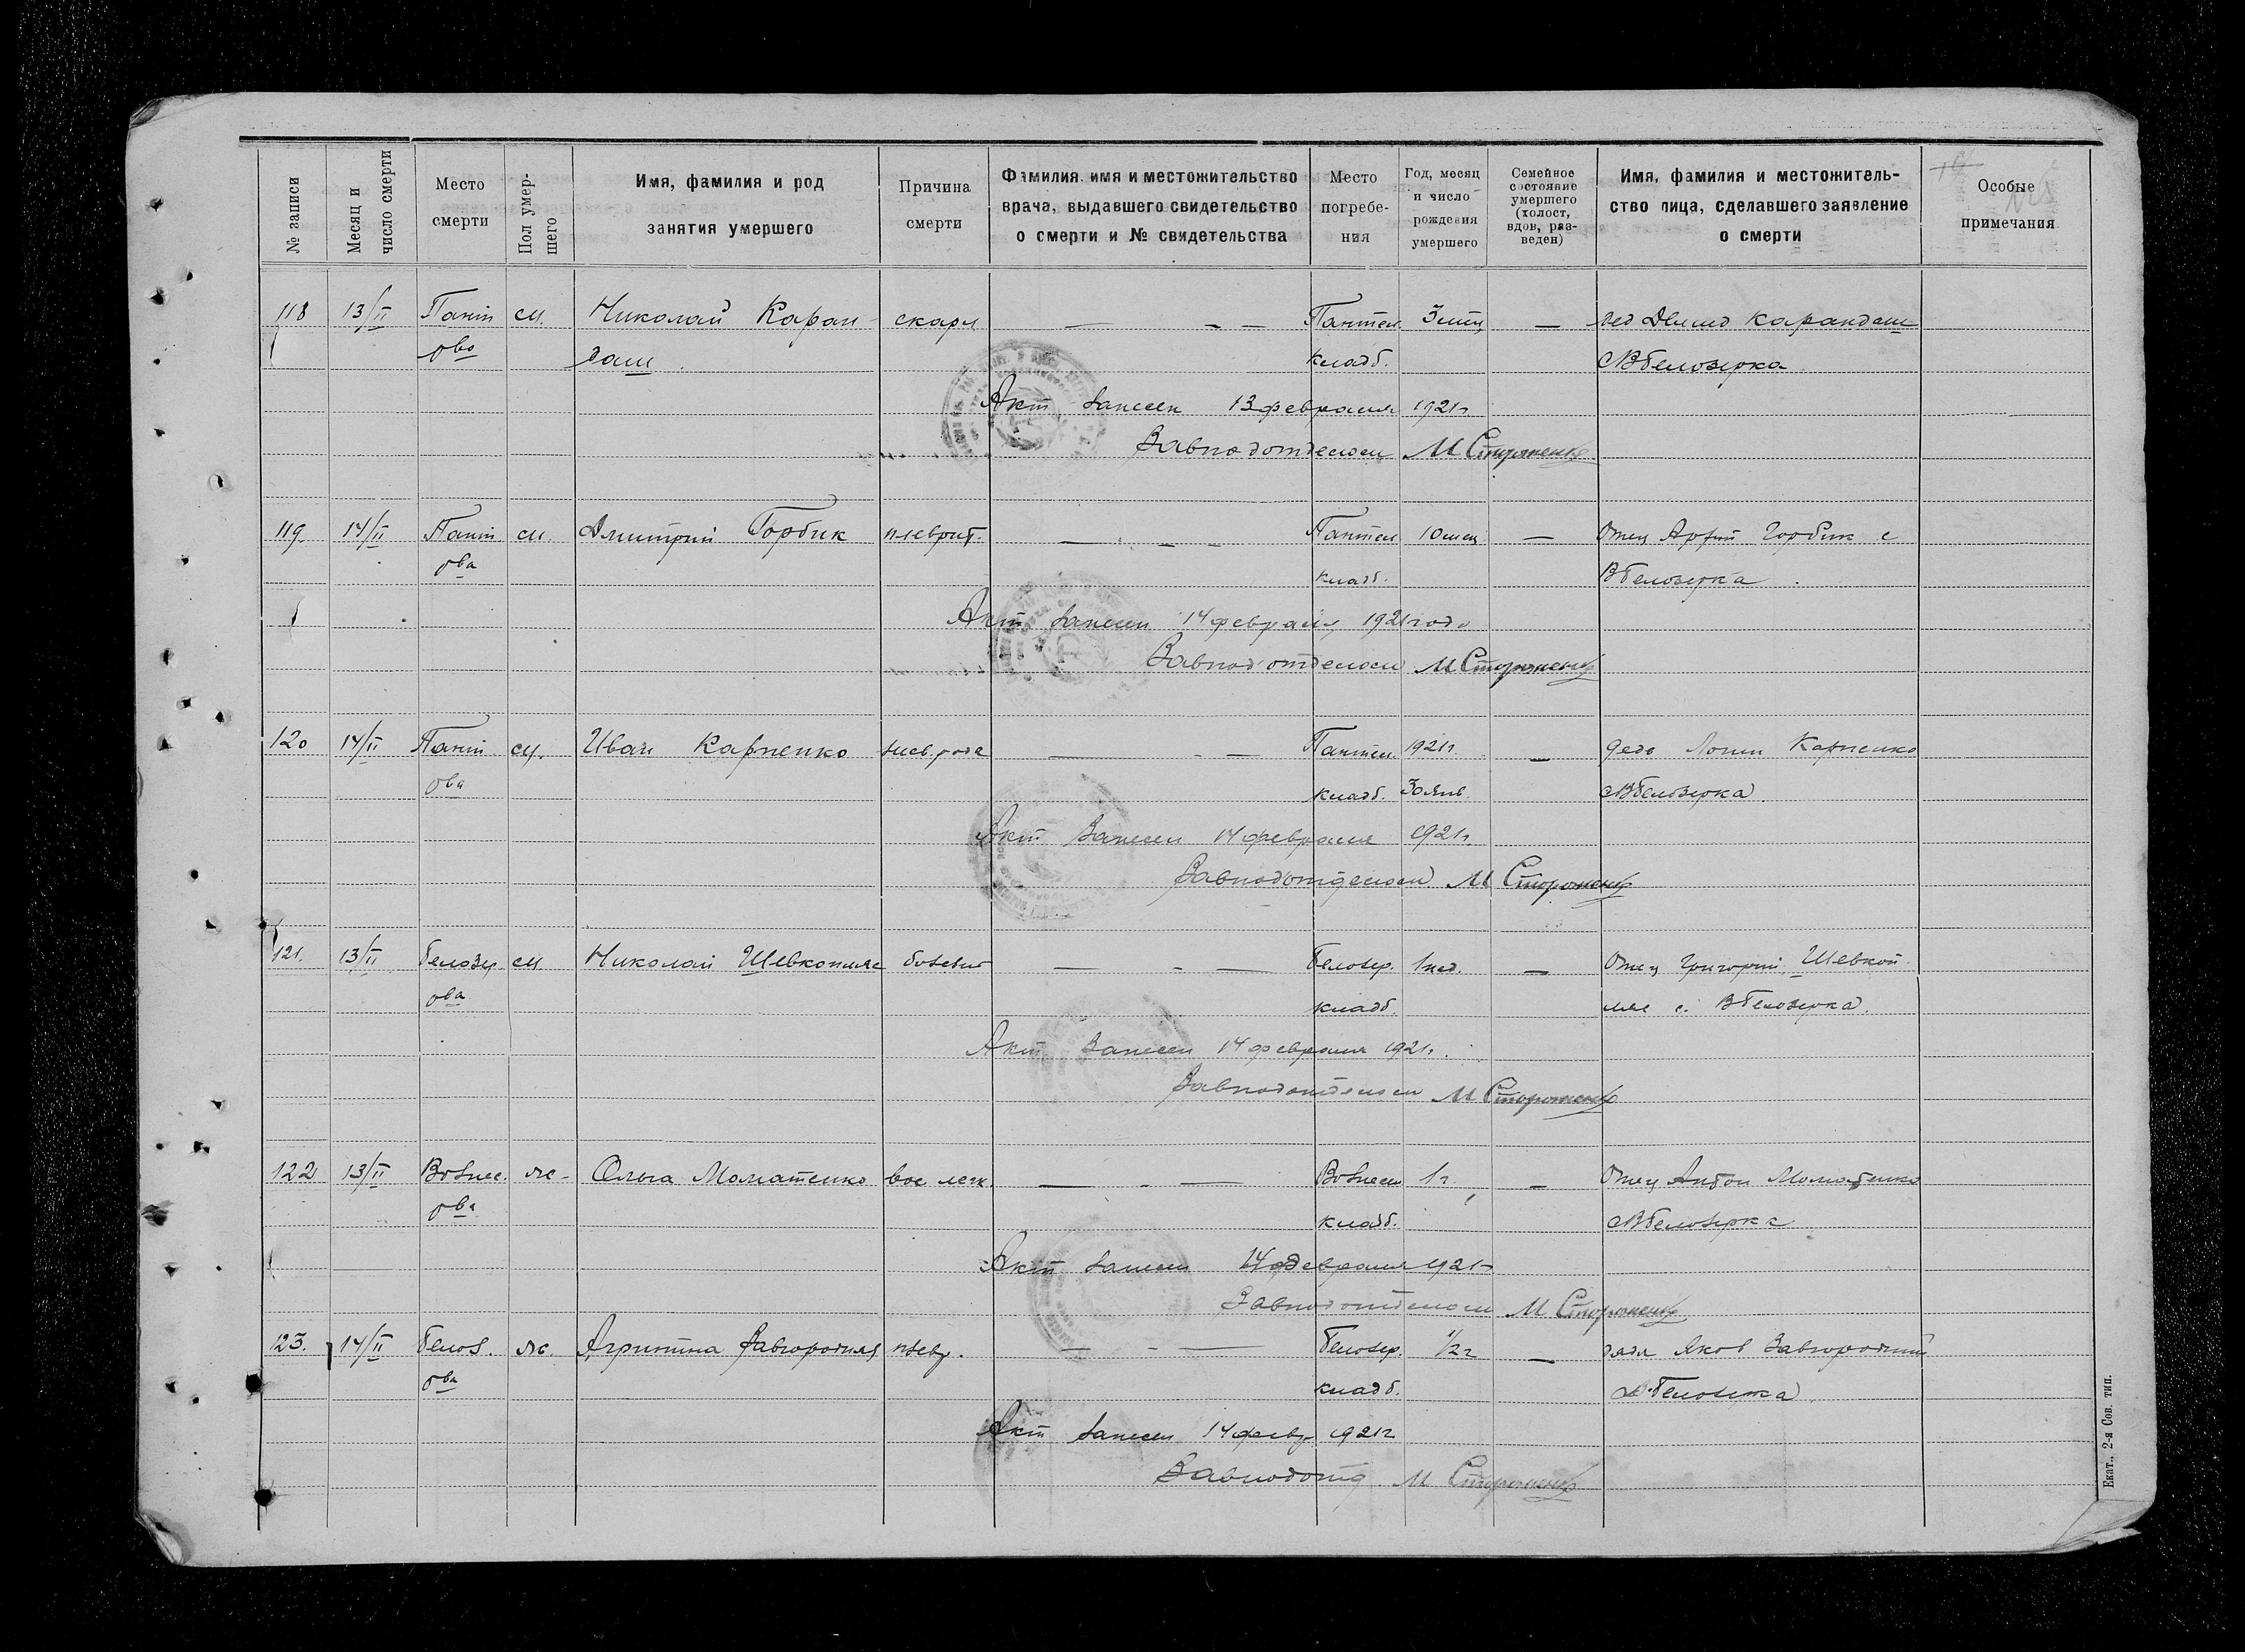 № записи
Месяц и число смерти
Место смерти
Пол умер-шего
Имя, фамилия и род занятия умершего
Причина смерти
Фамилия, имя и местожительство врача, выдавшего свидетельство о смерти и № свидетельства
Место погребе-ния
Год, месяц и число рождения умершего
Семейное состояние умершего (холост, вдов, раз-веден)
Имя, фамилия и местожитель-ство лица, сделавшего заявление о смерти
Особые примечания
118 13/II Пант м. Николай Каран- скарл — — — Пантел. — Карандаш
ова даш кладб. с В Белозерка
Акт занесен 13 февраля 1921 г
Завподотделом М Стороженко
119 14/II Пант м. Дмитрий Горбик плеврит. — — — Пантел 10 мец — Отец Горбик с
ова кладб. В Белозерка
Акт занесен 14 февраля 1921 года
Завподотделом М Стороженко
120 14/II Пант м. Иван Карпенко — — Пантел. 1921 г. — дедо Карпенко
ова кладб. 30 янв. с В Белозерка
Акт Занесен 14 февраля 1921 г
Завподотделом М Стороженко
121. 13/II Белозер м Николай Шевкопляс — — — Белозер. 1 нед. — Отец Григорий Шевкоп
ова кладб. ляс с. В Белозерка.
Акт Занесен 14 февраля 1921 г.
Завподотделом М Стороженко
122 13/II Вознес. ж- Ольга вос легк. — — — Вознесен 1 г — Отец Антон
ова кладб. с В Белозерка
Акт занесен 14 февраля 1921 г
Завподотделом М Стороженко
123. 14/II Белоз. ж. Агрипина Завгородняя — — — Белозер. 1/2 г — дядя Яков Завгородний
ова кладб. Белозерка
Акт занесен 14 февр 1921 г
Завподотд М Стороженко
Екат., 2-я Сов. тип.